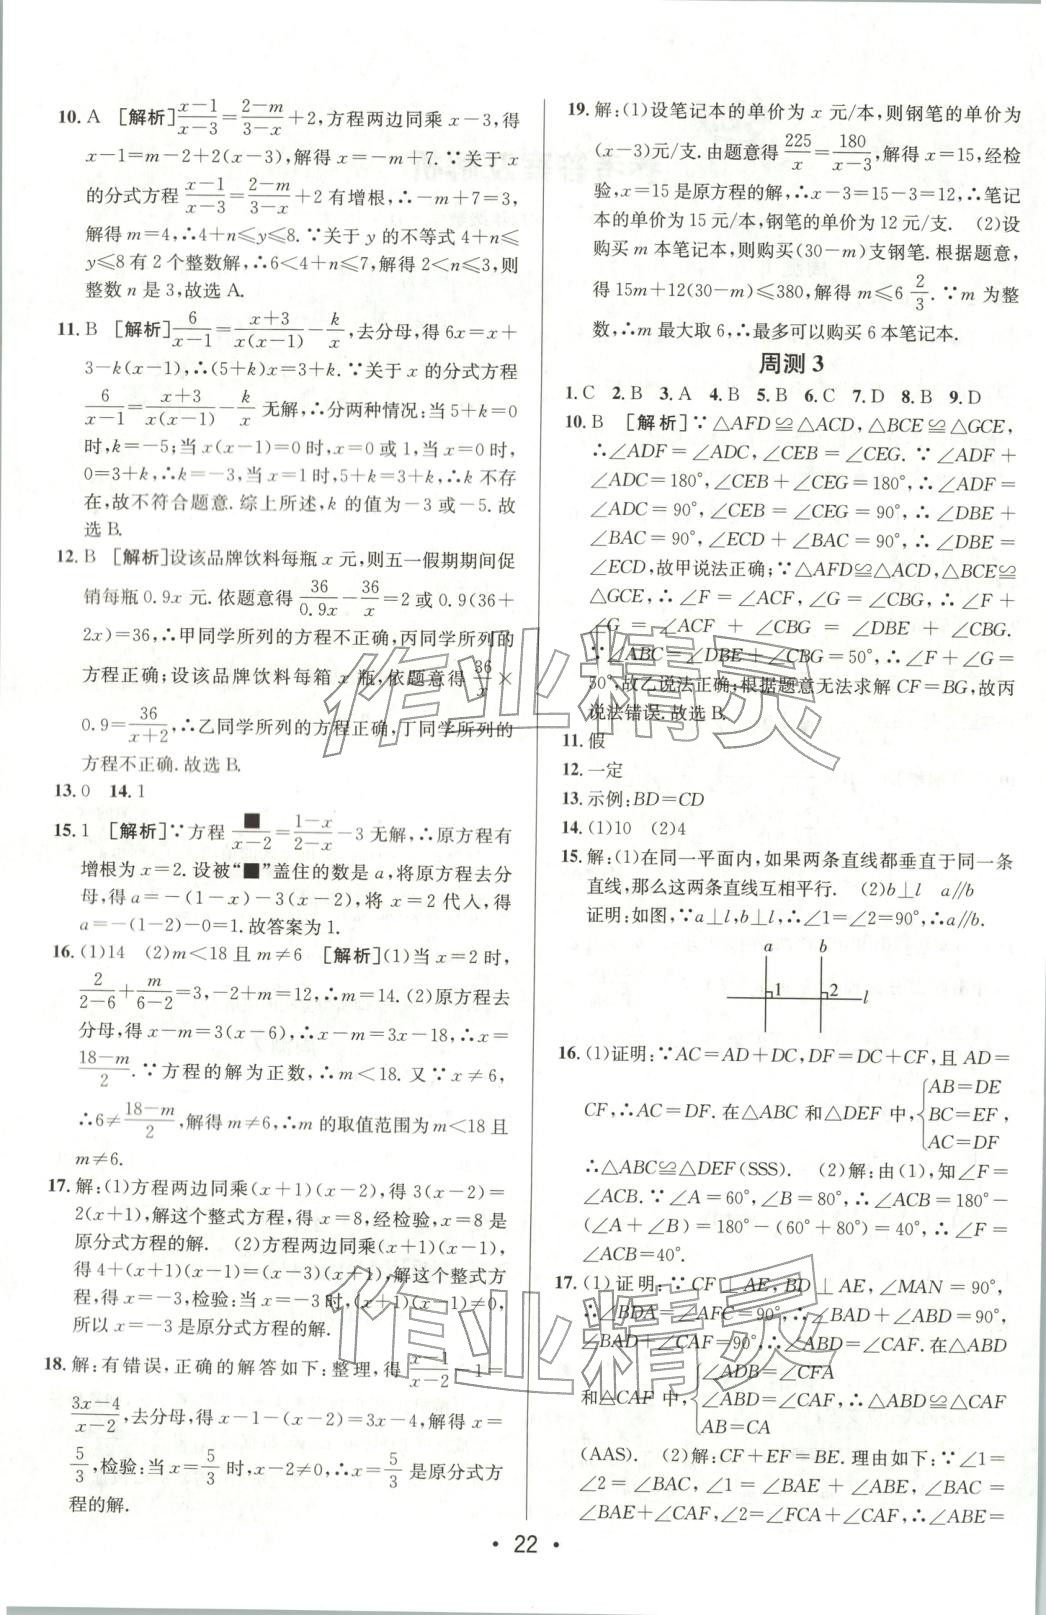 10. A [解析] $\frac{x-1}{x-3}=\frac{2-m}{3-x}+2$,方程两边同乘 x-3,得
x-1=m-2+2(x-3),解得 x=-m+7.∵关于 x
的分式方程 $\frac{x-1}{x-3}=\frac{2-m}{3-x}+2$ 有增根,∴-m+7=3,
解得 m=4,∴4+n≤y≤8.∵关于 y 的不等式 4+n≤
y≤8 有 2 个整数解,∴6<4+n≤7,解得 2<n≤3,则
整数 n 是 3,故选 A.
11. B [解析] $\frac{6}{x-1}=\frac{x+3}{x(x-1)}-\frac{k}{x}$,去分母,得 6x=x+
3-k(x-1),∴(5+k)x=3+k.∵关于 x 的分式方程
$\frac{6}{x-1}=\frac{x+3}{x(x-1)}-\frac{k}{x}$ 无解,∴分两种情况:当 5+k=0
时,k=-5;当 x(x-1)=0 时,x=0 或 1,当 x=0 时,
0=3+k,∴k=-3,当 x=1 时,5+k=3+k,∴k 不存
在,故不符合题意.综上所述,k 的值为-3 或-5.故
选 B.
12. B [解析]设该品牌饮料每瓶 x 元,则五一假期期间促
销每瓶 0.9x 元.依题意得 $\frac{36}{0.9x}-\frac{36}{x}=2$ 或 0.9(36+
2x)=36,∴甲同学所列的方程不正确,丙同学所列的
方程正确;设该品牌饮料每箱 x 瓶,依题意得 $\frac{36}{x}$×
0.9=$\frac{36}{x+2}$,∴乙同学所列的方程正确,丁同学所列的
方程不正确.故选 B.
13. 0 14. 1
15. 1 [解析]∵方程 $\frac{■}{x-2}=\frac{1-x}{2-x}-3$ 无解,∴原方程有
增根为 x=2.设被“■”盖住的数是 a,将原方程去分
母,得 a=-(1-x)-3(x-2),将 x=2 代人,得
a=-(1-2)-0=1.故答案为 1.
16. (1)14 (2)m<18 且 m≠6 [解析](1)当 x=2 时,
$\frac{2}{2-6}+\frac{m}{6-2}=3$,-2+m=12,∴m=14.(2)原方程去
分母,得 x-m=3(x-6),∴x-m=3x-18,∴x=
$\frac{18-m}{2}$.∵方程的解为正数,∴m<18.又∵x≠6,
∴6≠$\frac{18-m}{2}$,解得 m≠6,∴m 的取值范围为 m<18 且
m≠6.
17. 解:(1)方程两边同乘(x+1)(x-2),得 3(x-2)=
2(x+1),解这个整式方程,得 x=8,经检验,x=8 是
原分式方程的解. (2)方程两边同乘(x+1)(x-1),
得 4+(x+1)(x-1)=(x-3)(x+1),解这个整式方程,
得 x=-3,检验:当 x=-3 时,(x+1)(x-1)≠0,
所以 x=-3 是原分式方程的解.
18. 解:有错误,正确的解答如下:整理,得 $\frac{x-1}{x-2}-1=$
$\frac{3x-4}{x-2}$,去分母,得 x-1-(x-2)=3x-4,解得 x=
$\frac{5}{3}$,检验:当 x=$\frac{5}{3}$ 时,x-2≠0,∴x=$\frac{5}{3}$ 是原分式方
程的解.
19. 解:(1)设笔记本的单价为 x 元/本,则钢笔的单价为
(x-3)元/支.由题意得 $\frac{225}{x}=\frac{180}{x-3}$,解得 x=15,经检
验,x=15 是原方程的解,∴x-3=15-3=12,∴笔记
本的单价为 15 元/本,钢笔的单价为 12 元/支. (2)设
购买 m 本笔记本,则购买(30-m)支钢笔.根据题意,
得 15m+12(30-m)≤380,解得 m≤6$\frac{2}{3}$.∵m 为整
数,∴m 最大取 6,∴最多可以购买 6 本笔记本.
周测 3
1. C 2. B 3. A 4. B 5. B 6. C 7. D 8. B 9. D
10. B [解析]∵△AFD≌△ACD,△BCE≌△GCE,
∴∠ADF=∠ADC,∠CEB=∠CEG.∵∠ADF+
∠ADC=180°,∠CEB+∠CEG=180°,∴∠ADF=
∠ADC=90°,∠CEB=∠CEG=90°,∴∠DBE+
∠BAC=90°,∠ECD+∠BAC=90°,∴∠DBE=
∠ECD,故甲说法正确;∵△AFD≌△ACD,△BCE≌
△GCE,∴∠F=∠ACF,∠G=∠CBG,∴∠F+
∠G=∠ACF+∠CBG=∠DBE+∠CBG.
∵∠ABC=∠DBE+∠CBG=50°,∴∠F+∠G=
50°,故乙说法正确;根据题意无法求解 CF=BG,故丙
说法错误.故选 B.
11. 假
12. 一定
13. 示例:BD=CD
14. (1)10 (2)4
15. 解:(1)在同一平面内,如果两条直线都垂直于同一条
直线,那么这两条直线互相平行. (2)b⊥l a∥b
证明:如图,∵a⊥l,b⊥l,∴∠1=∠2=90°,∴a∥b.
a b
1 2 l
16. (1)证明:∵AC=AD+DC,DF=DC+CF,且 AD=
CF,∴AC=DF.在△ABC 和△DEF 中,$\begin{cases}AB=DE\\BC=EF,\\AC=DF\end{cases}$
∴△ABC≌△DEF(SSS). (2)解:由(1),知∠F=
∠ACB.∵∠A=60°,∠B=80°,∴∠ACB=180°-
(∠A+∠B)=180°-(60°+80°)=40°,∴∠F=
∠ACB=40°.
17. (1)证明:∵CF⊥AE,BD⊥AE,∠MAN=90°,
∴∠BDA=∠AFC=90°,∴∠BAD+∠ABD=90°,
∠BAD+∠CAF=90°,∴∠ABD=∠CAF.在△ABD
和△CAF 中,$\begin{cases}∠ADB=∠CFA\\∠ABD=∠CAF,\\AB=CA\end{cases}$∴△ABD≌△CAF
(AAS). (2)解:CF+EF=BE.理由如下:∵∠1=
∠2=∠BAC,∠1=∠BAE+∠ABE,∠BAC=
∠BAE+∠CAF,∠2=∠FCA+∠CAF,∴∠ABE=
• 22 •
作业精灵
作业精灵